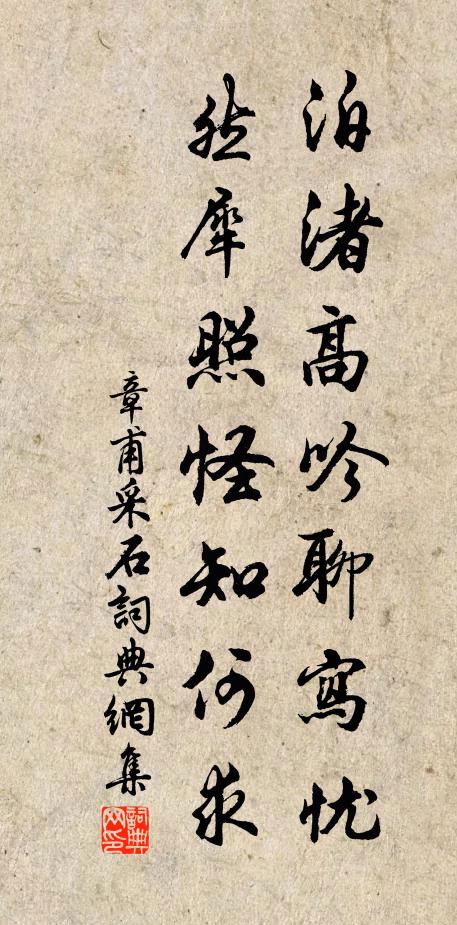 泊渚高吟聊寫忧
然犀照怪知何求
章甫采石詞典網集
詞典网印